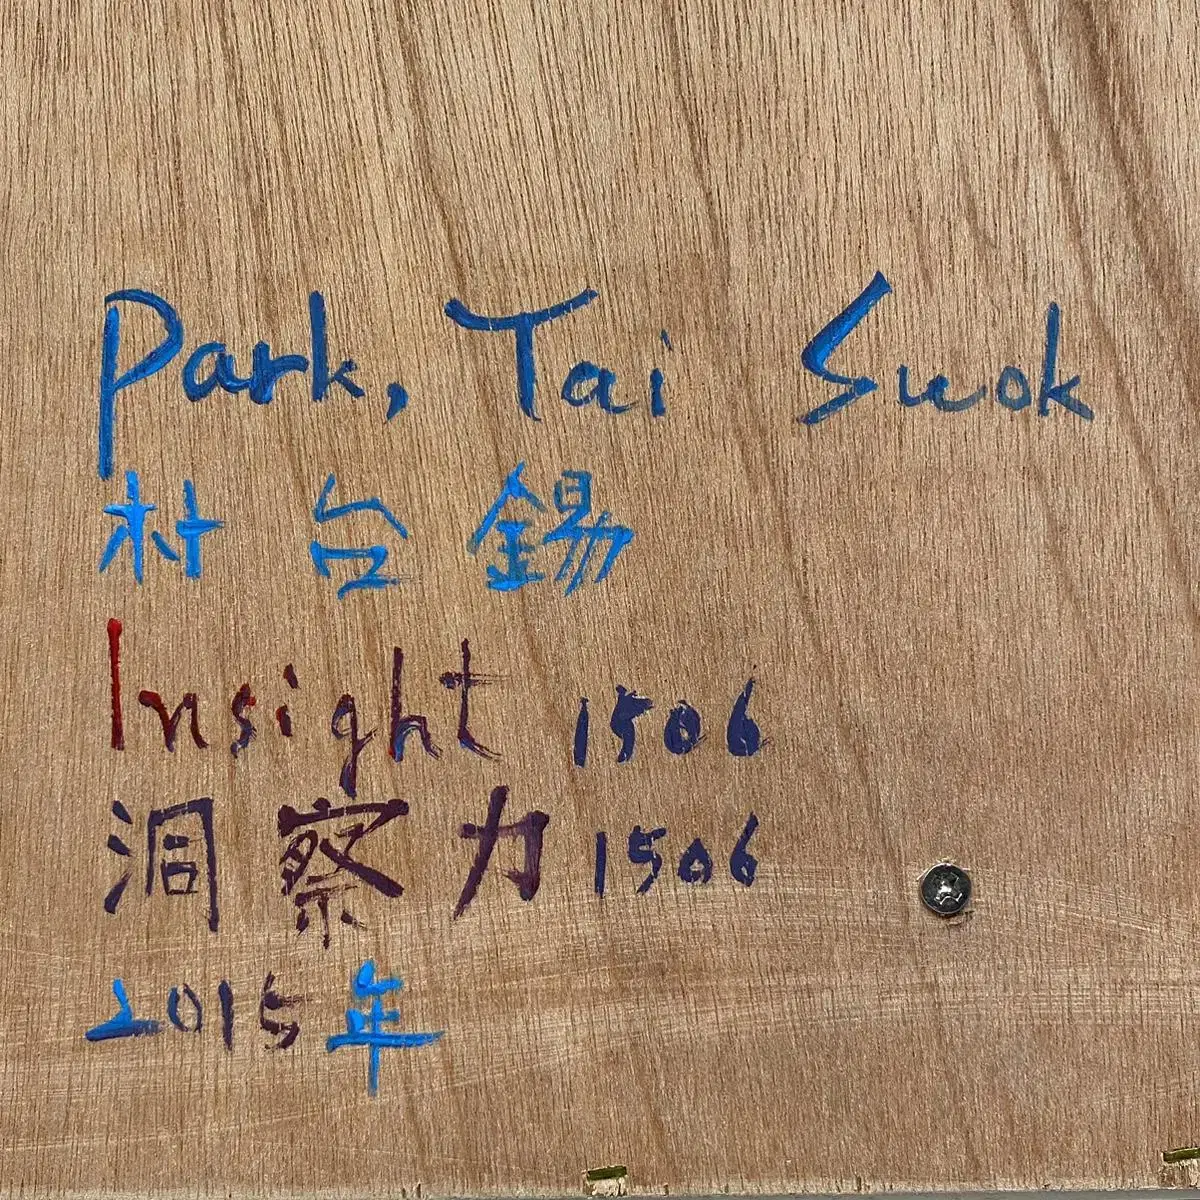 Park, Tai Suok
朴 台 錫
Insight 1506
洞 察 力 1506
2015年